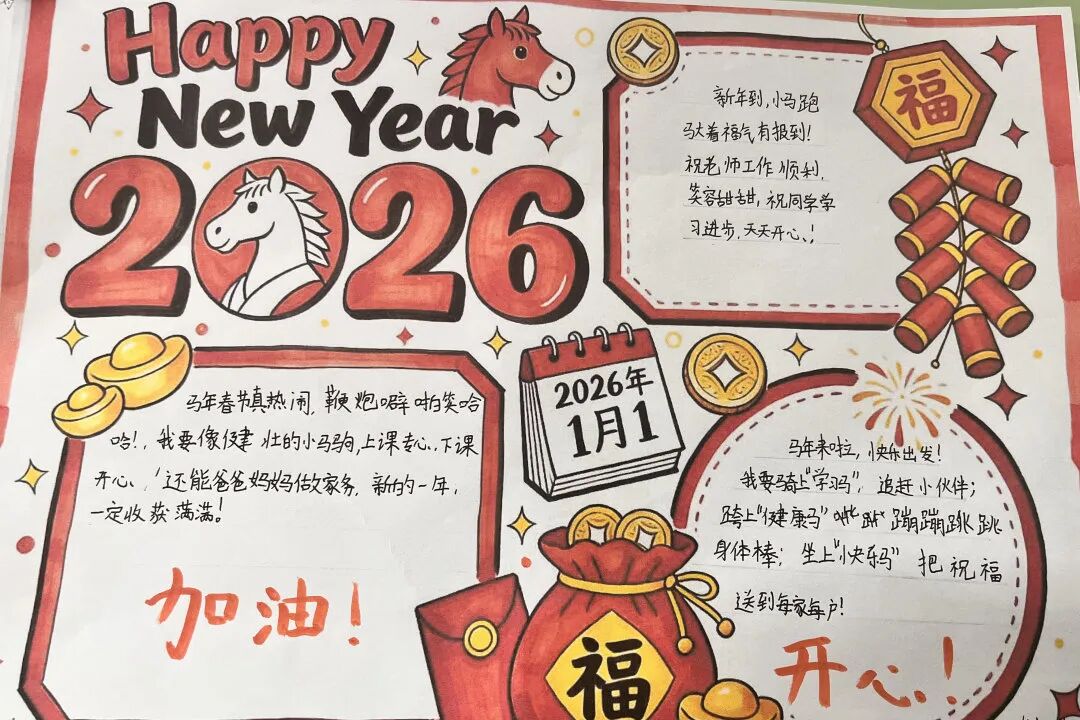 Happy
New Year
2026
福
新年到,小马跑
马大着福气有报到!
祝老师工作顺利,
笑容甜甜,祝同学学
习进步,天天开心!
2026年
1月1
马年春节真热闹,鞭炮噼啪笑哈
哈!,我要像健壮的小马驹,上课专心,下课
开心,!还能爸爸妈妈做家务,新的一年,
一定收获满满!
加油!
马年来啦,快乐出发!
我要骑上"学习马",追赶小伙伴;
跨上"健康马"蹦蹦跳跳
身体棒;坐上"快乐马"把祝福
送到每家每户!
开心!
福